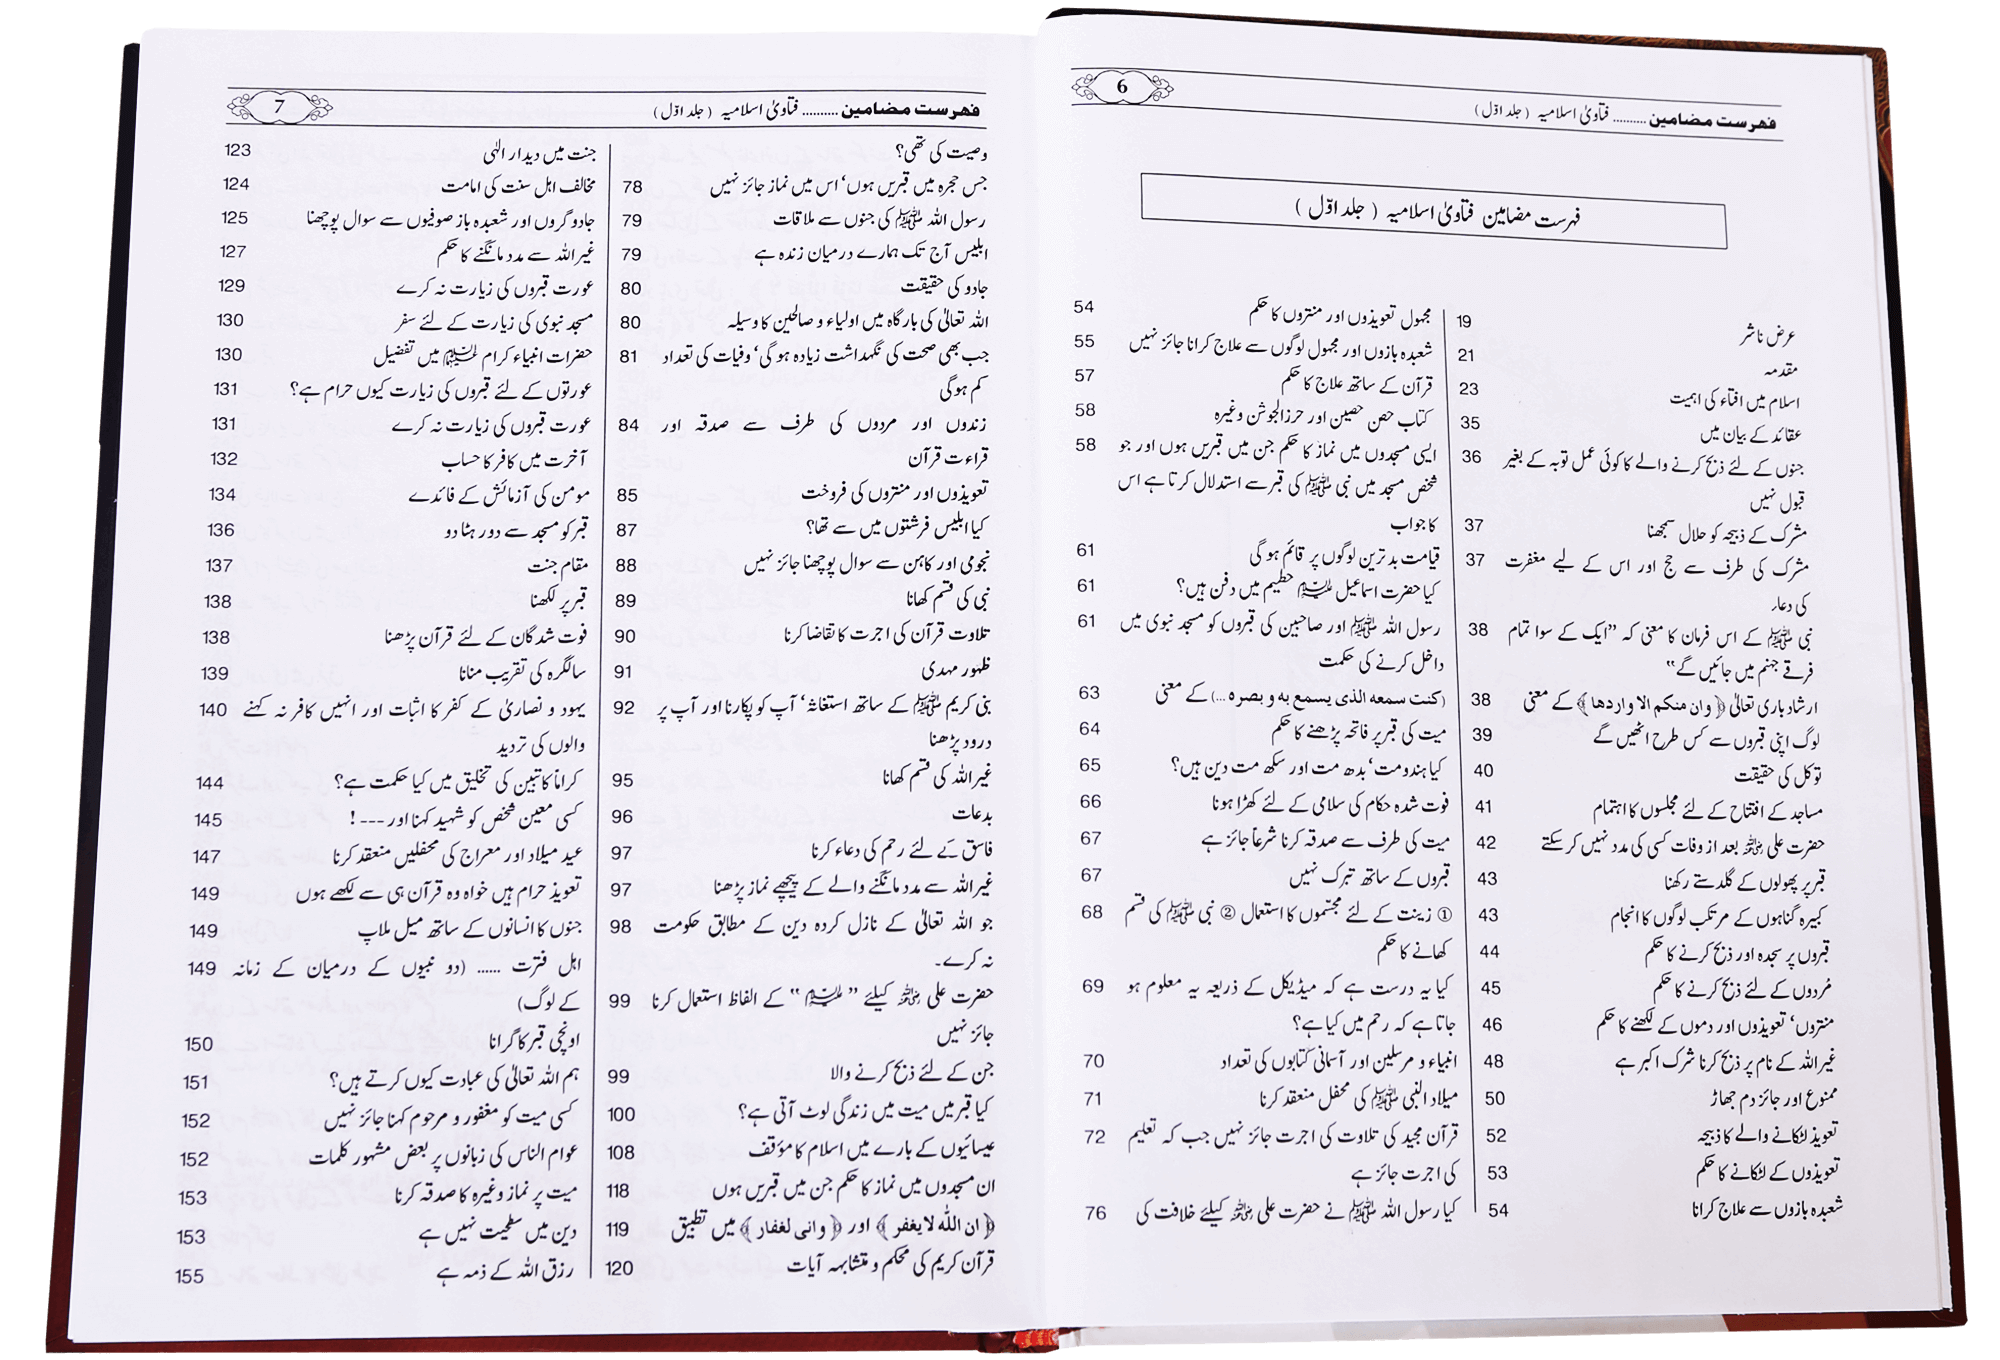 فہرست مضامین .......... فتاویٰ اسلامیہ (جلد اوّل)
6
فہرست مضامین فتاویٰ اسلامیہ (جلد اوّل)
عرض ناشر 19
مقدمہ 21
اسلام میں افتاء کی اہمیت 23
عقائد کے بیان میں 35
جنوں کے لئے ذبح کرنے والے کا کوئی عمل توبہ کے بغیر 36
قبول نہیں
مشرک کے ذبیحہ کو حلال سمجھنا 37
مشرک کی طرف سے حج اور اس کے لیے مغفرت 37
کی دعاء
نبی ﷺ کے اس فرمان کا معنی کہ ”ایک کے سوا تمام 38
فرقے جہنم میں جائیں گے“
ارشاد باری تعالیٰ ﴿وان منکم الا واردھا﴾ کے معنی 38
لوگ اپنی قبروں سے کس طرح اٹھیں گے 39
توکل کی حقیقت 40
مساجد کے افتتاح کے لئے مجلسوں کا اہتمام 41
حضرت علی رضی اللہ عنہ بعد از وفات کسی کی مدد نہیں کر سکتے 42
قبر پر پھولوں کے گلدستے رکھنا 43
کبیرہ گناہوں کے مرتکب لوگوں کا انجام 43
قبروں پر سجدہ اور ذبح کرنے کا حکم 44
مُردوں کے لئے ذبح کرنے کا حکم 45
منتروں‘ تعویذوں اور دموں کے لکھنے کا حکم 46
غیر اللہ کے نام پر ذبح کرنا شرک اکبر ہے 48
ممنوع اور جائز دم جھاڑ 50
تعویذ لٹکانے والے کا ذبیحہ 52
تعویذوں کے لٹکانے کا حکم 53
شعبدہ بازوں سے علاج کرانا 54
مجہول تعویذوں اور منتروں کا حکم 54
شعبدہ بازوں اور مجہول لوگوں سے علاج کرانا جائز نہیں 55
قرآن کے ساتھ علاج کا حکم 57
کتاب حصن حصین اور حرزالجوشن وغیرہ 58
ایسی مسجدوں میں نماز کا حکم جن میں قبریں ہوں اور جو 58
شخص مسجد میں نبی ﷺ کی قبر سے استدلال کرتا ہے اس
کا جواب
قیامت بد ترین لوگوں پر قائم ہو گی 61
کیا حضرت اسماعیل علیہ السلام حطیم میں دفن ہیں؟ 61
رسول اللہ ﷺ اور صاحبین کی قبروں کو مسجد نبوی میں 61
داخل کرنے کی حکمت
(کنت سمعه الذی یسمع به و بصرہ ...) کے معنی 63
میت کی قبر پر فاتحہ پڑھنے کا حکم 64
کیا ہندومت‘ بدھ مت اور سکھ مت دین ہیں؟ 65
فوت شدہ حکام کی سلامی کے لئے کھڑا ہونا 66
میت کی طرف سے صدقہ کرنا شرعاً جائز ہے 67
قبروں کے ساتھ تبرک نہیں 67
① زینت کے لئے مجسّموں کا استعمال ② نبی ﷺ کی قسم 68
کھانے کا حکم
کیا یہ درست ہے کہ میڈیکل کے ذریعہ یہ معلوم ہو 69
جاتا ہے کہ رحم میں کیا ہے؟
انبیاء و مرسلین اور آسمانی کتابوں کی تعداد 70
میلاد النبی ﷺ کی محفل منعقد کرنا 71
قرآن مجید کی تلاوت کی اجرت جائز نہیں جب کہ تعلیم 72
کی اجرت جائز ہے
کیا رسول اللہ ﷺ نے حضرت علی رضی اللہ عنہ کیلئے خلافت کی 76
فہرست مضامین .......... فتاویٰ اسلامیہ (جلد اوّل)
7
وصیت کی تھی؟
جس حجرہ میں قبریں ہوں‘ اس میں نماز جائز نہیں 78
رسول اللہ ﷺ کی جنوں سے ملاقات 79
ابلیس آج تک ہمارے درمیان زندہ ہے 79
جادو کی حقیقت 80
اللہ تعالیٰ کی بارگاہ میں اولیاء و صالحین کا وسیلہ 80
جب بھی صحت کی نگہداشت زیادہ ہو گی‘ وفیات کی تعداد 81
کم ہوگی
زندوں اور مردوں کی طرف سے صدقہ اور 84
قراءت قرآن
تعویذوں اور منتروں کی فروخت 85
کیا ابلیس فرشتوں میں سے تھا؟ 87
نجومی اور کاہن سے سوال پوچھنا جائز نہیں 88
نبی کی قسم کھانا 89
تلاوت قرآن کی اجرت کا تقاضا کرنا 90
ظہور مہدی 91
نبی کریم ﷺ کے ساتھ استغاثہ‘ آپ کو پکارنا اور آپ پر 92
درود پڑھنا
غیر اللہ کی قسم کھانا 95
بدعات 96
فاسق کے لئے رحم کی دعاء کرنا 97
غیر اللہ سے مدد مانگنے والے کے پیچھے نماز پڑھنا 97
جو اللہ تعالیٰ کے نازل کردہ دین کے مطابق حکومت 98
نہ کرے۔
حضرت علی رضی اللہ عنہ کیلئے ”علیہ السلام“ کے الفاظ استعمال کرنا 99
جائز نہیں
جن کے لئے ذبح کرنے والا 99
کیا قبر میں میت میں زندگی لوٹ آتی ہے؟ 100
عیسائیوں کے بارے میں اسلام کا مؤقف 108
ان مسجدوں میں نماز کا حکم جن میں قبریں ہوں 118
﴿ان اللّٰه لا یغفر﴾ اور ﴿وانی لغفار﴾ میں تطبیق 119
قرآن کریم کی محکم و متشابہہ آیات 120
جنت میں دیدار الٰہی 123
مخالف اہل سنت کی امامت 124
جادوگروں اور شعبدہ باز صوفیوں سے سوال پوچھنا 125
غیر اللہ سے مدد مانگنے کا حکم 127
عورت قبروں کی زیارت نہ کرے 129
مسجد نبوی کی زیارت کے لئے سفر 130
حضرات انبیاء کرام علیہم السلام میں تفضیل 130
عورتوں کے لئے قبروں کی زیارت کیوں حرام ہے؟ 131
عورت قبروں کی زیارت نہ کرے 131
آخرت میں کافر کا حساب 132
مومن کی آزمائش کے فائدے 134
قبر کو مسجد سے دور ہٹا دو 136
مقام جنت 137
قبر پر لکھنا 138
فوت شدگان کے لئے قرآن پڑھنا 138
سالگرہ کی تقریب منانا 139
یہود و نصاریٰ کے کفر کا اثبات اور انہیں کافر نہ کہنے 140
والوں کی تردید
کراماً کاتبین کی تخلیق میں کیا حکمت ہے؟ 144
کسی معین شخص کو شہید کہنا اور ---! 145
عید میلاد اور معراج کی محفلیں منعقد کرنا 147
تعویذ حرام ہیں خواہ وہ قرآن ہی سے لکھے ہوں 149
جنوں کا انسانوں کے ساتھ میل ملاپ 149
اہل فترت ...... (دو نبیوں کے درمیان کے زمانہ 149
کے لوگ)
اونچی قبر کا گرانا 150
ہم اللہ تعالیٰ کی عبادت کیوں کرتے ہیں؟ 151
کسی میت کو مغفور و مرحوم کہنا جائز نہیں 152
عوام الناس کی زبانوں پر بعض مشہور کلمات 152
میت پر نماز وغیرہ کا صدقہ کرنا 153
دین میں سطحیت نہیں ہے 153
رزق اللہ کے ذمہ ہے 155